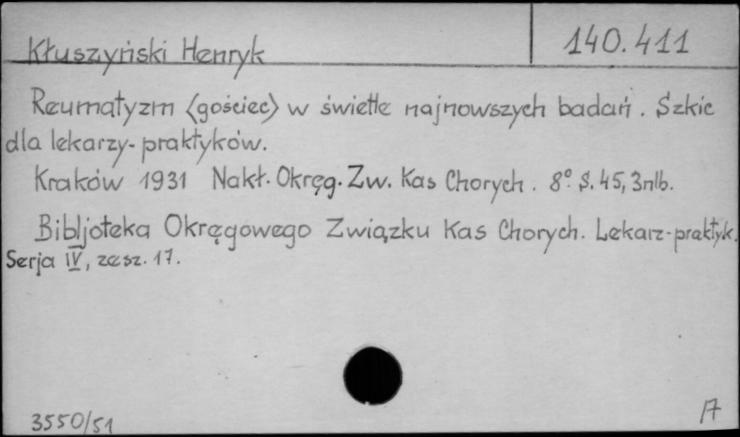 Kłuszyński Henryk 140.411
Reumatyzm (gościec) w świetle najnowszych badań. Szkic
dla lekarzy-praktyków.
Kraków 1931 Nakł. Okręg. Zw. Kas Chorych. 8° S. 45, 3nlb.
Bibljoteka Okręgowego Związku Kas Chorych. Lekarz-praktyk.
Serja IV, zesz. 17.
3550/51